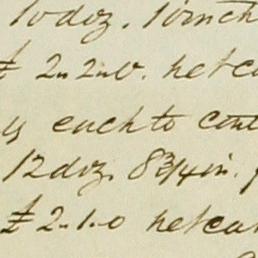 10 doz. 10 inch
£ 2 " 2 " 0. net ca
each to cont
12 doz. 8 3/4 in.
£ 2 " 1 " 0 net ca